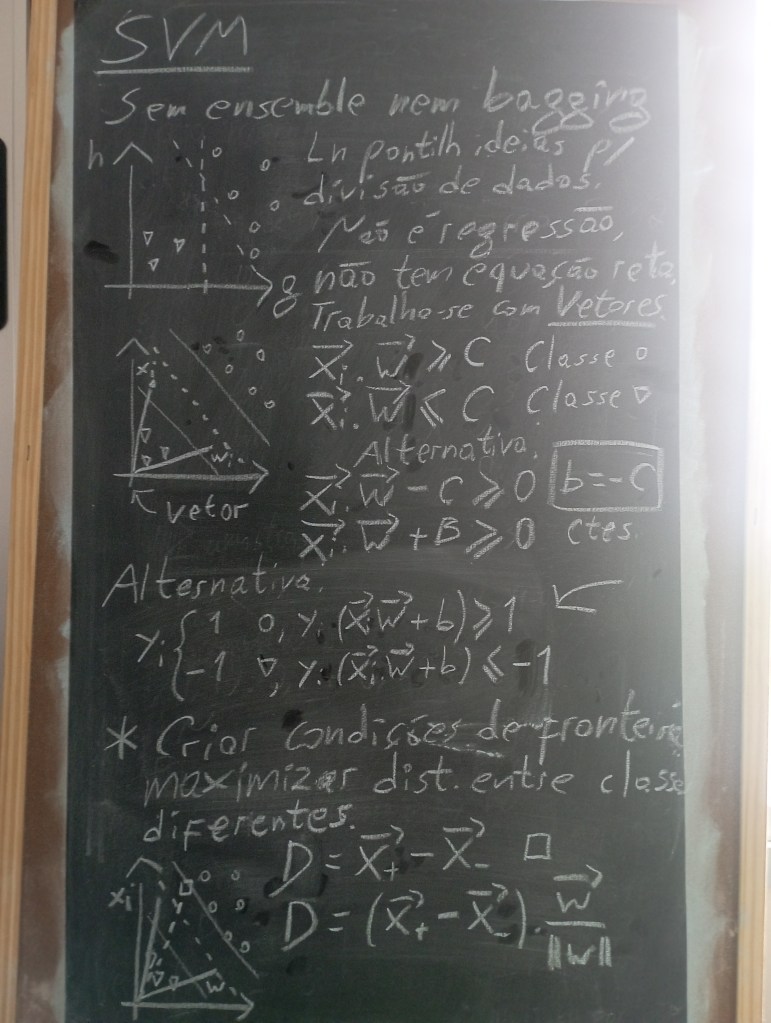 SVM
Sem ensemble nem bagging
h
Ln pontilh ideias p/
divisão de dados.
Não é regressão,
g não tem equação reta,
Trabalha-se com Vetores.
xi
wi
vetor
X⃗i. W⃗ ⩾ C Classe o
X⃗i. W⃗ ⩽ C Classe ▽
Alternativa.
X⃗i. W⃗ - C ⩾ 0 b=-C
X⃗i. W⃗ + B ⩾ 0 ctes.
Alternativa.
yi { 1 o, yi (X⃗iW⃗+b) ⩾ 1
-1 ▽, yi (X⃗iW⃗+b) ⩽ -1
* Criar condições de fronteira
maximizar dist. entre classe
diferentes.
D = X⃗+ - X⃗- □
D = (X⃗+ - X⃗-). W⃗/||W||
xi
w